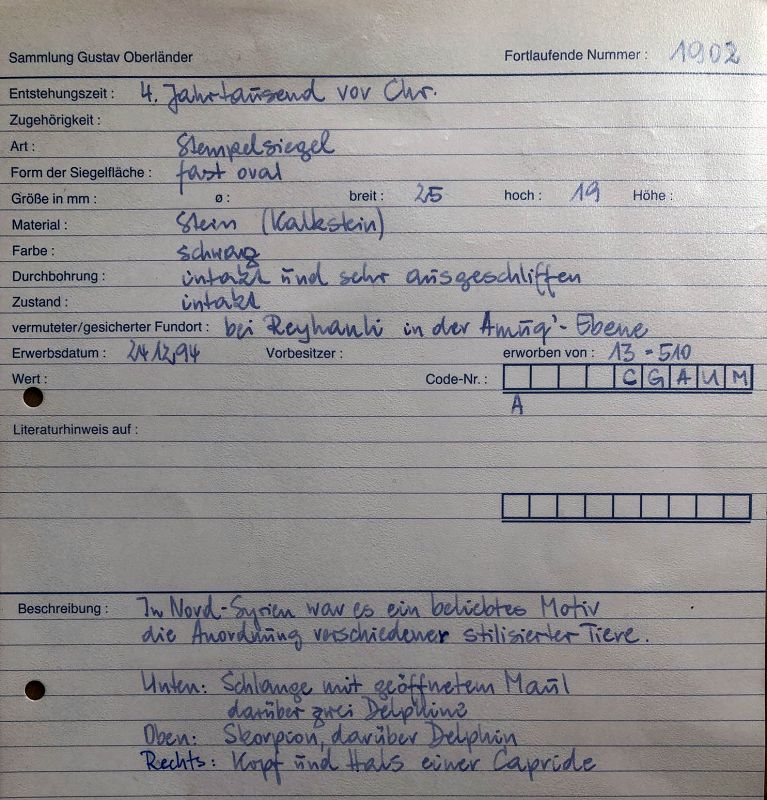 Sammlung Gustav Oberländer Fortlaufende Nummer : 1902
Entstehungszeit : 4. Jahrtausend vor Chr.
Zugehörigkeit :
Art : Stempelsiegel
Form der Siegelfläche : fast oval
Größe in mm : ø : breit : 25 hoch : 19 Höhe :
Material : Stein (Kalkstein)
Farbe : schwarz
Durchbohrung : intakt und sehr ausgeschliffen
Zustand : intakt
vermuteter/gesicherter Fundort : bei Reyhanli in der Amuq'-Ebene
Erwerbsdatum : 24.12.94 Vorbesitzer : erworben von : 13-510
Wert : Code-Nr. : C G A U M
A
Literaturhinweis auf :
Beschreibung : In Nord-Syrien war es ein beliebtes Motiv
die Anordnung verschiedener stilisierter Tiere.
Unten: Schlange mit geöffnetem Maul
darüber zwei Delphine
Oben: Skorpion, darüber Delphin
Rechts: Kopf und Hals einer Capride